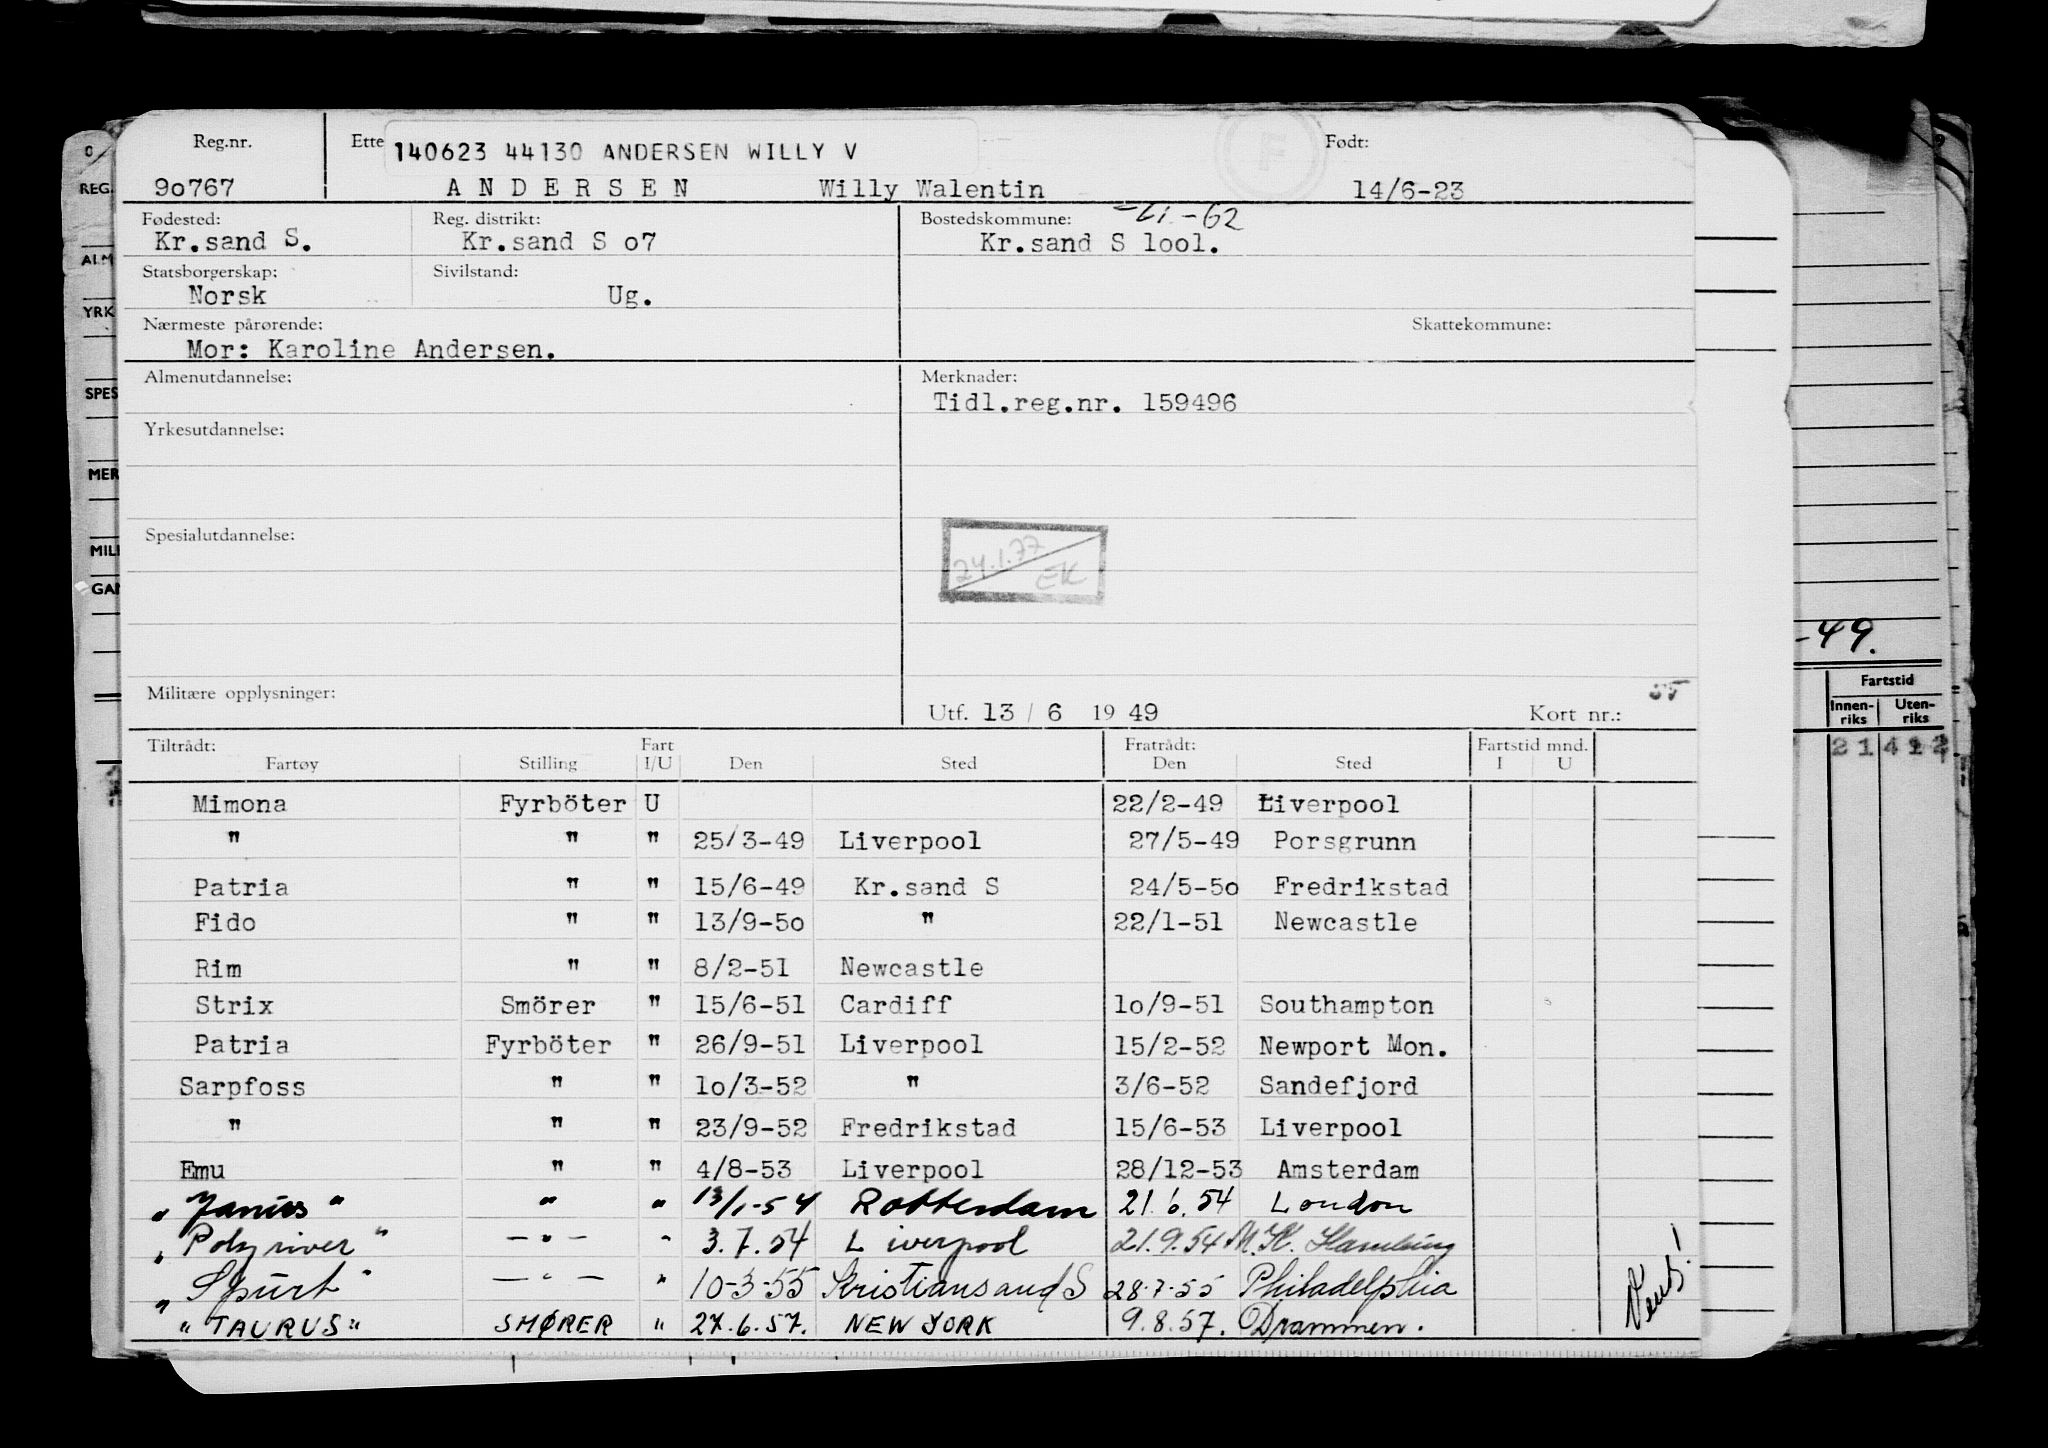 Reg.nr. Ette 140623 44130 ANDERSEN WILLY V Født:
9o767 A N D E R S E N Willy Walentin 14/6-23
F
Fødested: Reg. distrikt: Bostedskommune: -62
Kr.sand S. Kr.sand S o7 Kr.sand S lool.
Statsborgerskap: Sivilstand:
Norsk Ug.
Nærmeste pårørende: Skattekommune:
Mor: Karoline Andersen.
Almenutdannelse: Merknader:
Tidl.reg.nr. 159496
Yrkesutdannelse:
Spesialutdannelse:
24.1.77
EK
Militære opplysninger: Utf. 13 / 6 19 49 Kort nr.:
Tiltrådt: Fart Fratrådt: Fartstid mnd.
Fartøy Stilling I/U Den Sted Den Sted I U
Mimona Fyrböter U 22/2-49 Liverpool
" " " 25/3-49 Liverpool 27/5-49 Porsgrunn
Patria " " 15/6-49 Kr.sand S 24/5-5o Fredrikstad
Fido " " 13/9-5o " 22/1-51 Newcastle
Rim " " 8/2-51 Newcastle
Strix Smörer " 15/6-51 Cardiff lo/9-51 Southampton
Patria Fyrböter " 26/9-51 Liverpool 15/2-52 Newport Mon.
Sarpfoss " " lo/3-52 " 3/6-52 Sandefjord
" " " 23/9-52 Fredrikstad 15/6-53 Liverpool
Emu " " 4/8-53 Liverpool 28/12-53 Amsterdam
"Janus" " " 13/1-54 Rotterdam 21.6.54 London
"Polyriver" —"— " 3.7.54 Liverpool 21.9.54 M.K. Hamburg
"Spurt" —"— " 10-3-55 Kristiansand S 28.7.55 Philadelphia
"TAURUS" SMØRER " 27.6.57. NEW YORK 9.8.57. Drammen.
Vend!
REG.
ALM
YRK
SPES
MER
MILI
GAN
-49.
Fartstid
Innen-riks Uten-riks
21 412